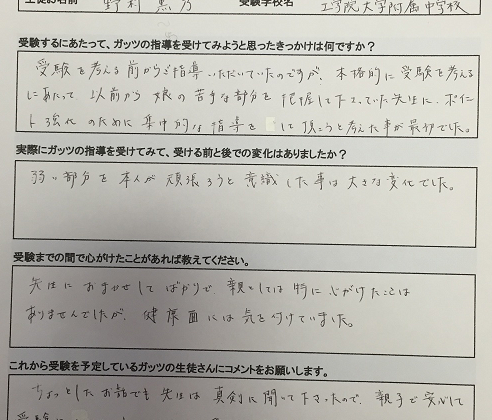 生徒お名前 野村 受験学校名 工学院大学附属中学校
受験するにあたって、ガッツの指導を受けてみようと思ったきっかけは何ですか？
受験を考える前からご指導いただいていたのですが、本格的に受験を考える
にあたって以前から娘の苦手な部分を把握して下さっていた先生に、ポイン
ト強化のために集中的な指導を して頂こうと考えた事が最初でした。
実際にガッツの指導を受けてみて、受ける前と後での変化はありましたか？
弱い部分を本人が頑張ろうと意識した事は大きな変化でした。
受験までの間で心がけたことがあれば教えてください。
先生におまかせしてばかりで、親としては特に心がけたことは
ありませんでしたが、健康面には気を付けていました。
これから受験を予定しているガッツの生徒さんにコメントをお願いします。
ちょっとしたお話でも先生は真剣に聞いて下さったので、親子で安心して